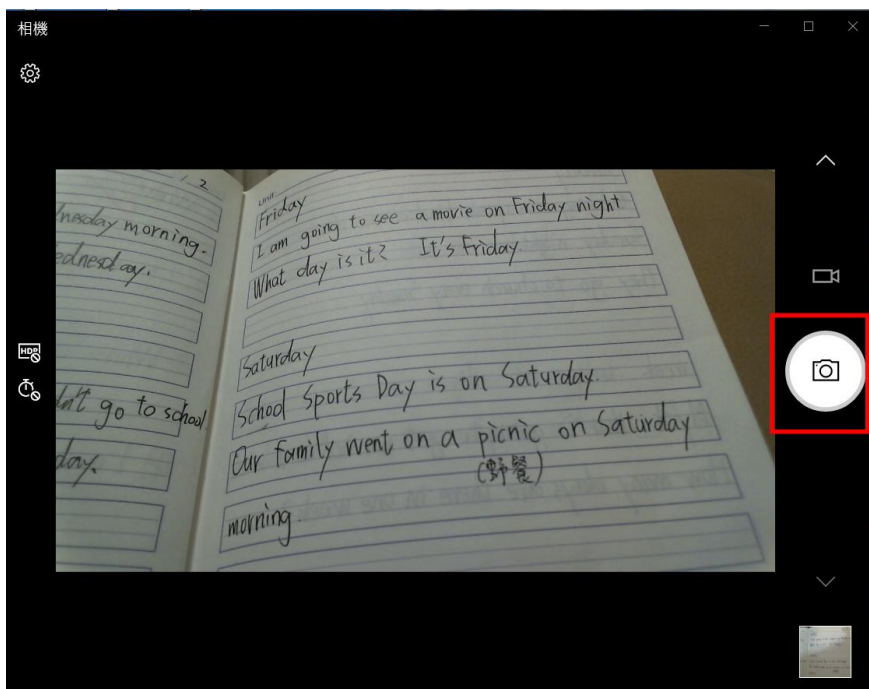 相機
2
nesday morning.
ednesday.
dn't go to school.
day.
Unit
Friday
I am going to see a movie on Friday night
What day is it? It's Friday
Saturday
School Sports Day is on Saturday.
Our family went on a picnic on Saturday
(野餐)
morning.
HDR